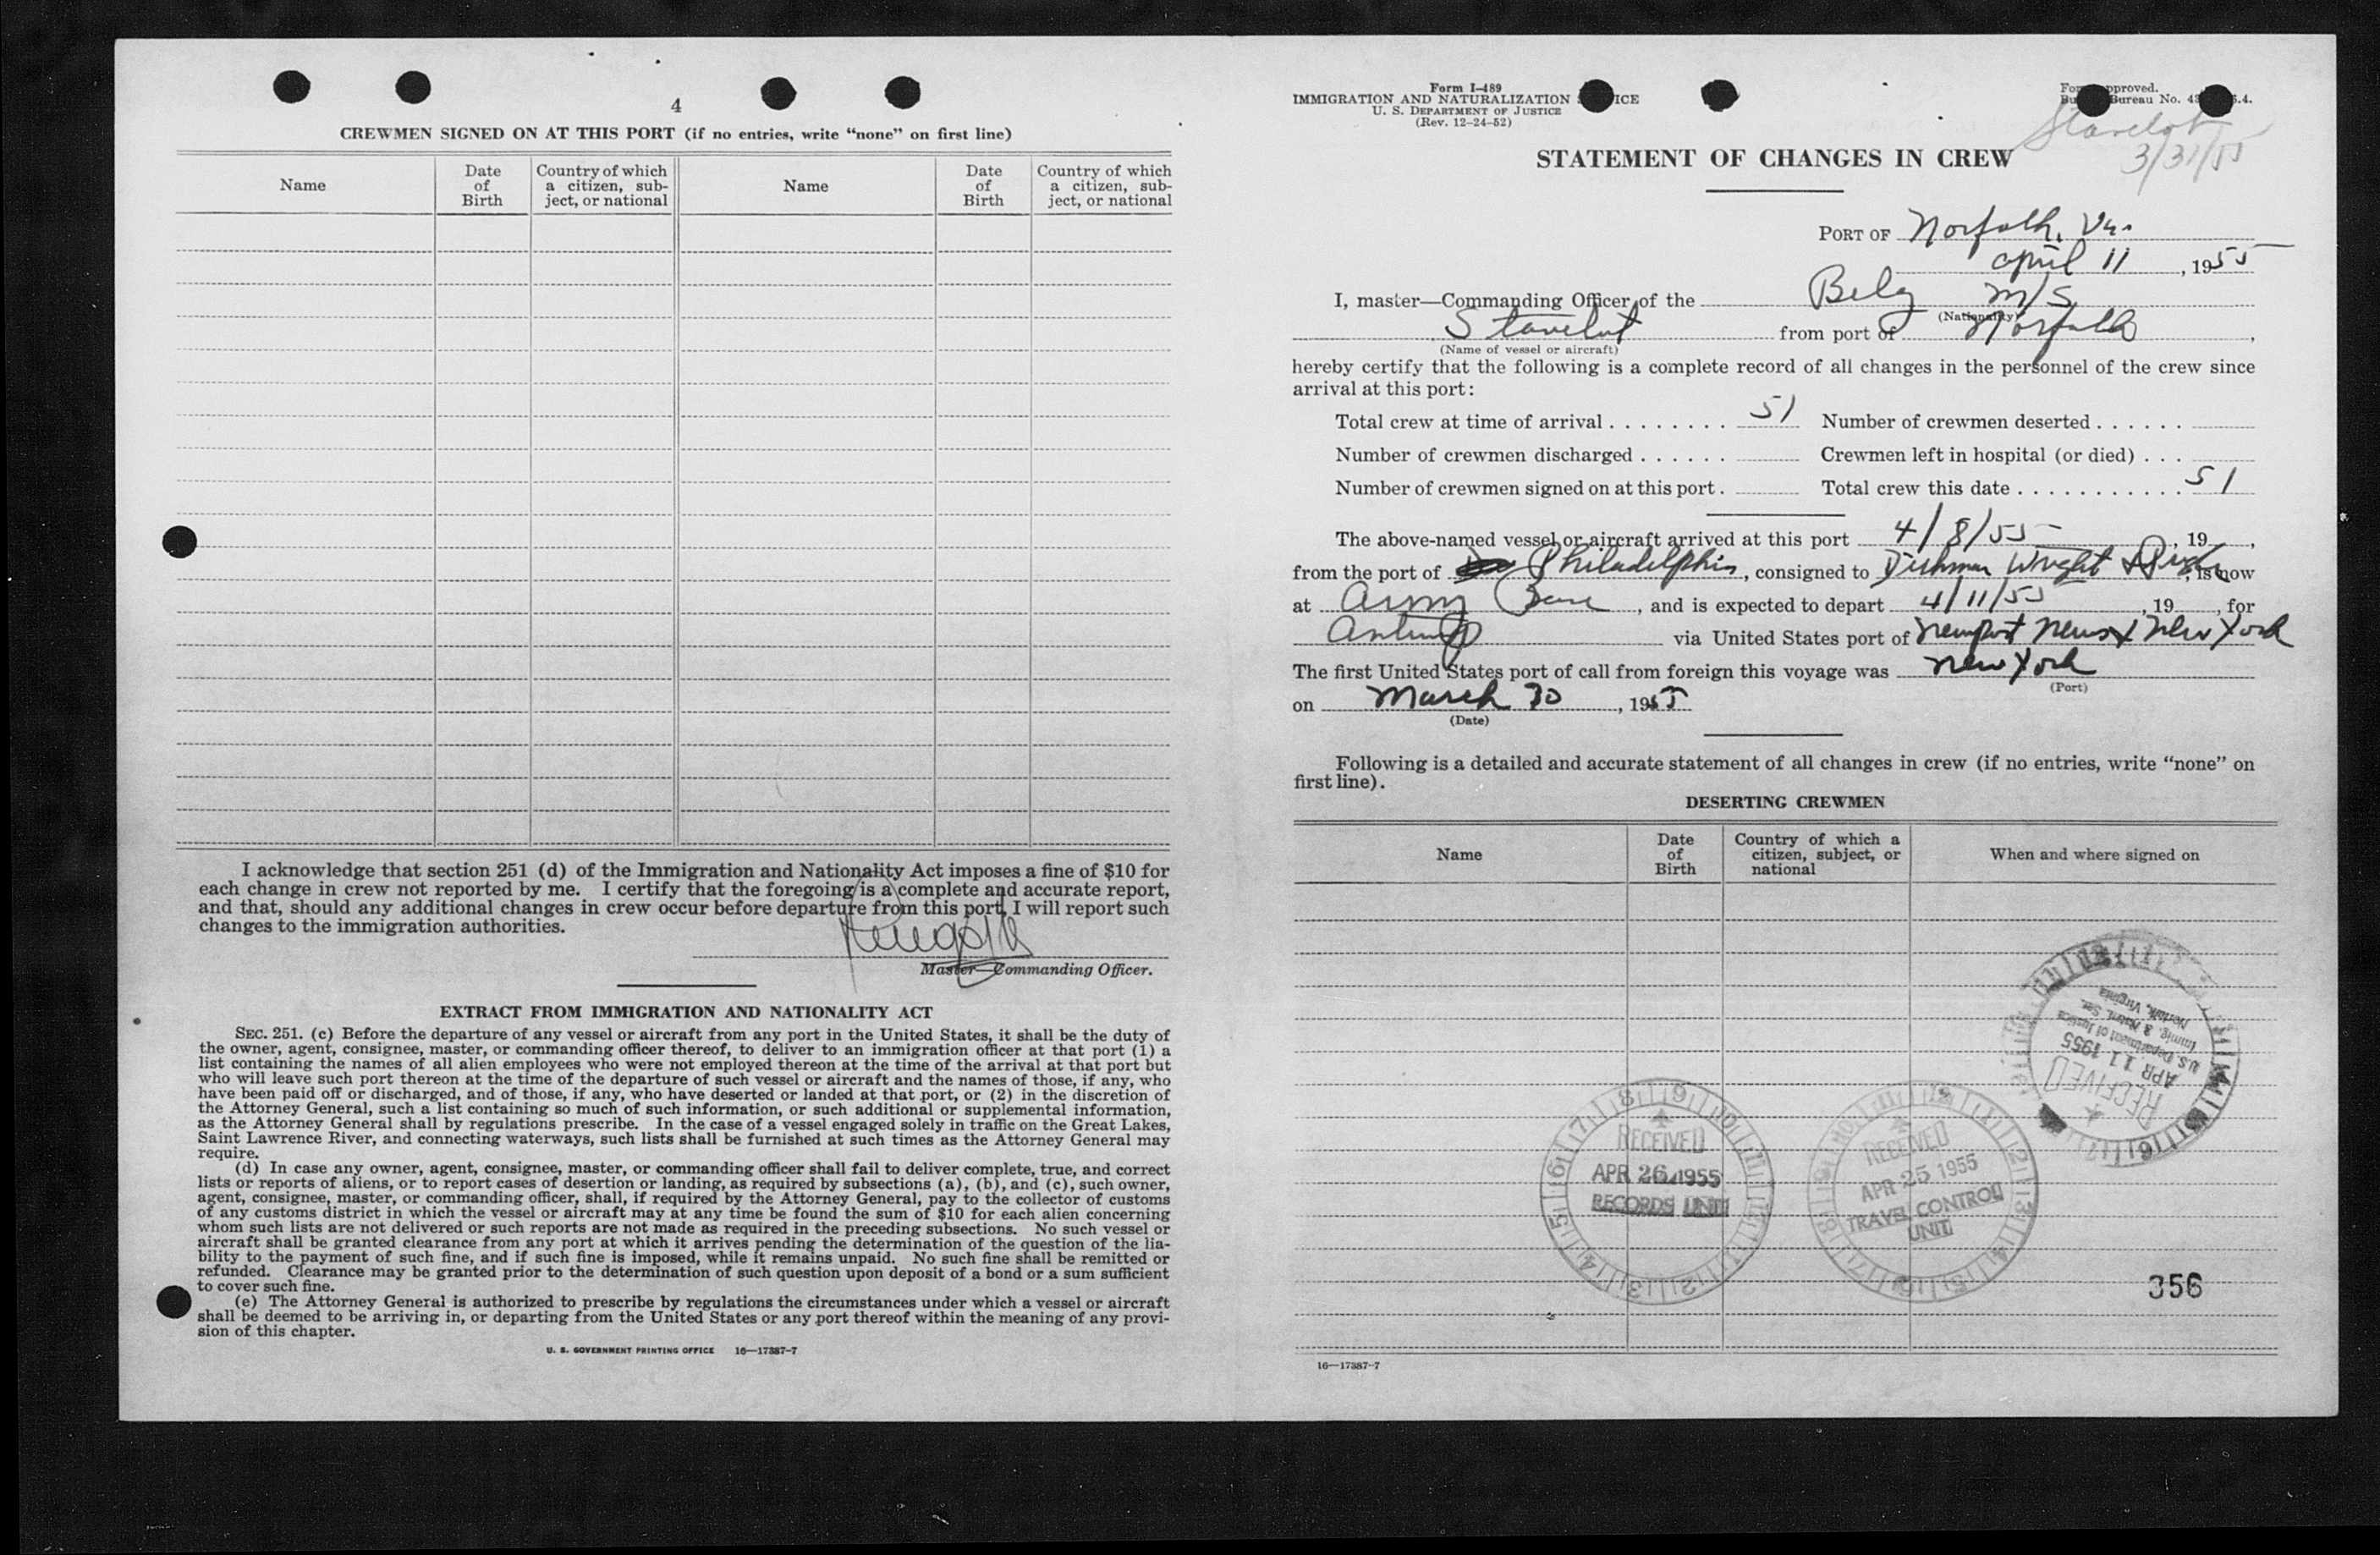 4
CREWMEN SIGNED ON AT THIS PORT (if no entries, write “none” on first line)
Name
Date of Birth
Country of which a citizen, sub-ject, or national
Name
Date of Birth
Country of which a citizen, sub-ject, or national
I acknowledge that section 251 (d) of the Immigration and Nationality Act imposes a fine of $10 for
each change in crew not reported by me. I certify that the foregoing is a complete and accurate report,
and that, should any additional changes in crew occur before departure from this port, I will report such
changes to the immigration authorities.
Master—Commanding Officer.
EXTRACT FROM IMMIGRATION AND NATIONALITY ACT
SEC. 251. (c) Before the departure of any vessel or aircraft from any port in the United States, it shall be the duty of
the owner, agent, consignee, master, or commanding officer thereof, to deliver to an immigration officer at that port (1) a
list containing the names of all alien employees who were not employed thereon at the time of the arrival at that port but
who will leave such port thereon at the time of the departure of such vessel or aircraft and the names of those, if any, who
have been paid off or discharged, and of those, if any, who have deserted or landed at that port, or (2) in the discretion of
the Attorney General, such a list containing so much of such information, or such additional or supplemental information,
as the Attorney General shall by regulations prescribe. In the case of a vessel engaged solely in traffic on the Great Lakes,
Saint Lawrence River, and connecting waterways, such lists shall be furnished at such times as the Attorney General may
require.
(d) In case any owner, agent, consignee, master, or commanding officer shall fail to deliver complete, true, and correct
lists or reports of aliens, or to report cases of desertion or landing, as required by subsections (a), (b), and (c), such owner,
agent, consignee, master, or commanding officer, shall, if required by the Attorney General, pay to the collector of customs
of any customs district in which the vessel or aircraft may at any time be found the sum of $10 for each alien concerning
whom such lists are not delivered or such reports are not made as required in the preceding subsections. No such vessel or
aircraft shall be granted clearance from any port at which it arrives pending the determination of the question of the lia-
bility to the payment of such fine, and if such fine is imposed, while it remains unpaid. No such fine shall be remitted or
refunded. Clearance may be granted prior to the determination of such question upon deposit of a bond or a sum sufficient
to cover such fine.
(e) The Attorney General is authorized to prescribe by regulations the circumstances under which a vessel or aircraft
shall be deemed to be arriving in, or departing from the United States or any port thereof within the meaning of any provi-
sion of this chapter.
U. S. GOVERNMENT PRINTING OFFICE 16—17387-7
Form I-489
IMMIGRATION AND NATURALIZATION
U. S. DEPARTMENT OF JUSTICE
(Rev. 12-24-52)
Bureau No.
Stavelot
3/31/55
STATEMENT OF CHANGES IN CREW
PORT OF Norfolk, Va.
April 11, 1955
I, master—Commanding Officer of the Belg M/S
(Nationality)
Stavelot from port of Norfolk,
(Name of vessel or aircraft)
hereby certify that the following is a complete record of all changes in the personnel of the crew since
arrival at this port:
Total crew at time of arrival 51 Number of crewmen deserted
Number of crewmen discharged Crewmen left in hospital (or died)
Number of crewmen signed on at this port. Total crew this date 51
The above-named vessel or aircraft arrived at this port 4/8/55, 19
from the port of Philadelphia, consigned to Dichman Wright, is now
at Army Base, and is expected to depart 4/11/55, 19, for
Antwp via United States port of Newport News & New York
The first United States port of call from foreign this voyage was New York
(Port)
on March 30, 1955
(Date)
Following is a detailed and accurate statement of all changes in crew (if no entries, write “none” on
first line).
DESERTING CREWMEN
Name
Date of Birth
Country of which a citizen, subject, or national
When and where signed on
RECEIVED
APR 11 1955
U.S. Department of Justice
Immig. & Natri. Ser.
Norfolk, Virginia
RECEIVED
APR 26 1955
RECORDS UNIT
RECEIVED
APR 25 1955
TRAVEL CONTROL
UNIT
356
16—17387-7